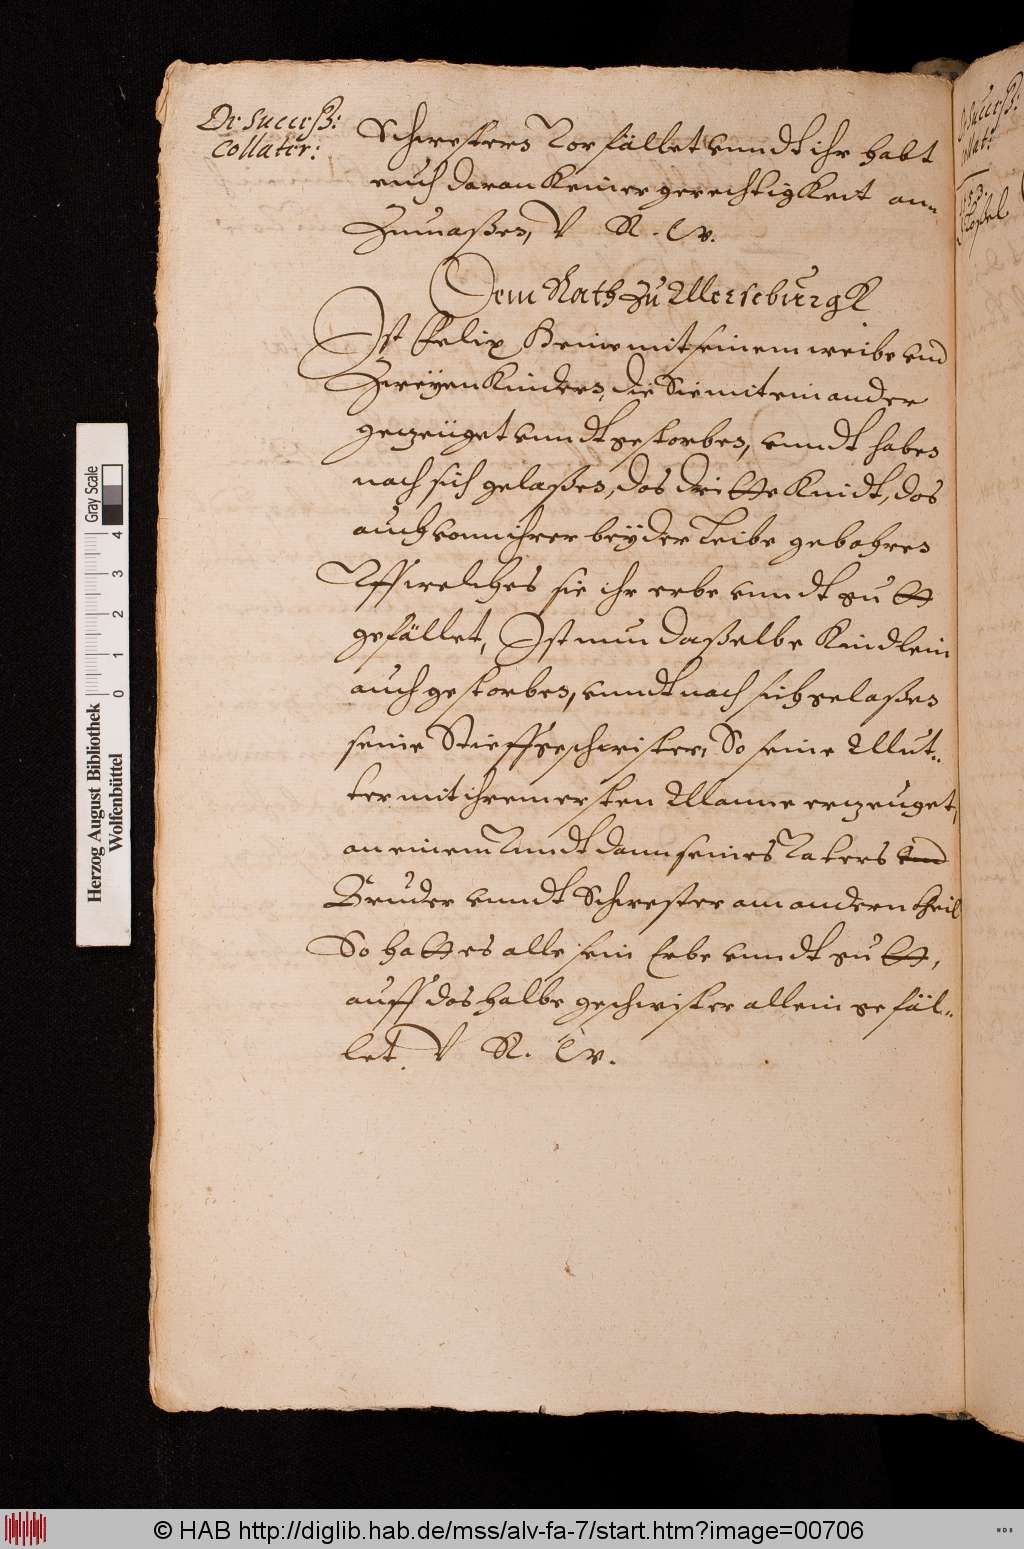 De Success:
Collater:
Schwesters Tor fället vnndt ihr habt
euch daran keiner gerechtigkeit an-
Zumaßen, V R. W.
Dem Rath Zu Merseburgk
Ist Felix mit seinem weibe vnd
Zweÿen Kindern, die Sie mit einander
gezeüget vnndt gestorben, vnndt haben
nach sich gelaßen, das dritte Kindt, das
auch vonn ihrer beÿder Leibe gebohren
Vff welches sie ihr erbe vnndt gutt
gefället, Ist nun daßelbe Kindlein
auch gestorben, vnndt nach sich gelaßen
seine Stieffgeschwister, So seine Mut-
ter mit ihrem ersten Manne erzeuget,
an einem Vnndt dann seines Vaters vnd
Bruder vnndt Schwester am andern theil
So hatt es alle sein Erbe vnndt gutt,
auff das halbe geschwister allein gefäl-
let. V R. W.
De Success:
Collat:
Herzog August Bibliothek
Wolfenbüttel
Gray Scale
0 1 2 3 4
© HAB http://diglib.hab.de/mss/alv-fa-7/start.htm?image=00706